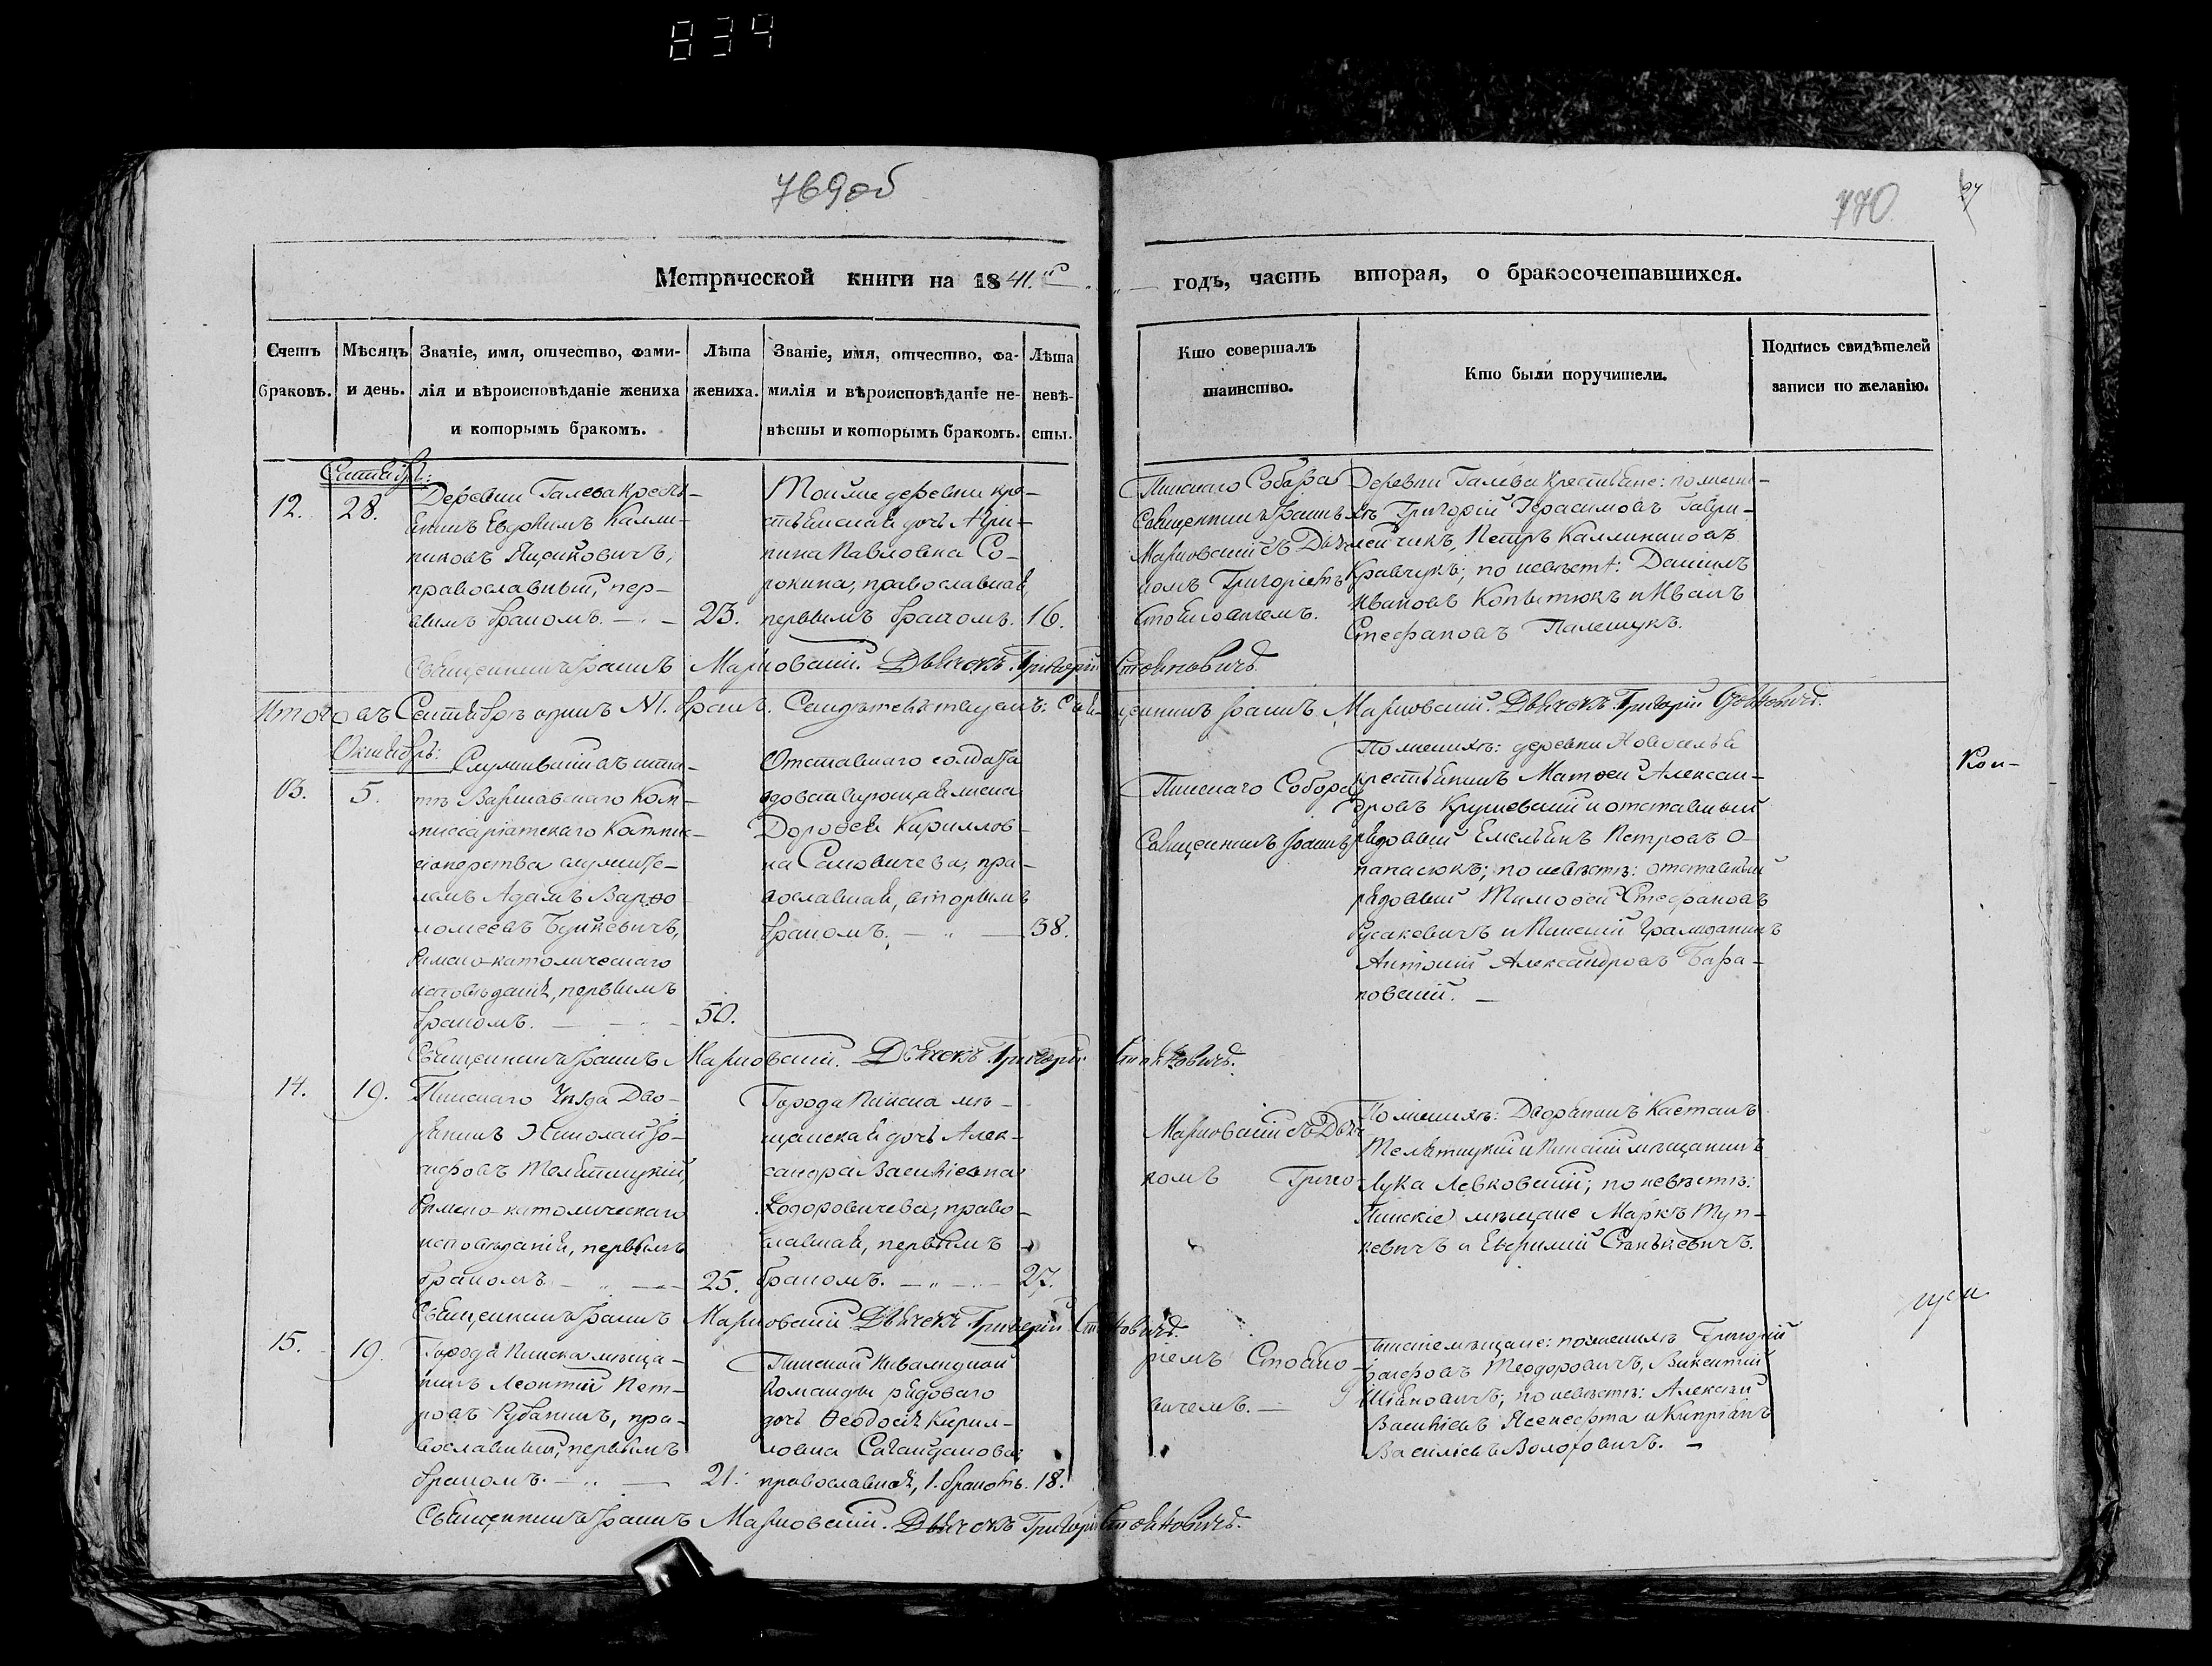 834
769об
770
97
Метрической книги на 1841.й
годъ, часть вторая, о бракосочетавшихся.
Счетъ браковъ.
Мѣсяцъ и день.
Званіе, имя, отчество, фами-
лія и вѣроисповѣданіе жениха
и которымъ бракомъ.
Лѣта
жениха.
Званіе, имя, отчество, фа-
милія и вѣроисповѣданіе не-
вѣсты и которымъ бракомъ.
Лѣта
невѣ-
сты.
Кто совершалъ
таинство.
Кто были поручители.
Подпись свидѣтелей
записи по желанію.
Сентябрь:
12.
28.
Деревни Галева кресть-
янинъ Евфимъ Калли-
никовъ Яцуковичъ,
православный, пер-
вымъ бракомъ. — " —
23.
Тойже деревни кре-
стьянская дочь Агри-
пина Павловна Со-
рокина, православная,
первымъ бракомъ.
16.
Пинскаго Собора
Священникъ Іоаннъ
Марновскій съ Дьяч-
комъ Григоріемъ
Стояновичемъ.
Деревни Галева крестьяне: по жени-
хѣ Григорій Герасимовъ Гаври-
лейчикъ, Петръ Каллиниковъ
Кравчукъ; по невѣстѣ: Даніилъ
Ивановъ Копытюкъ и Иванъ
Стефановъ Палещукъ.
Священникъ Іоаннъ Марновскій. Дьячокъ Григорій Стояновичъ.
Итого въ Сентябрѣ одинъ №1. бракъ. Свидѣтельствуемъ: Священникъ Іоаннъ Марновскій. Дьячокъ Григорій Стояновичъ.
Октябрь:
13.
5.
Служившій въ шта-
тѣ Варшавскаго Ком-
миссаріатскаго Коммис-
сіонерства служите-
лемъ Адамъ Варѳо-
ломеевъ Буйкевичъ,
Римско-католическаго
исповѣданія, первымъ
бракомъ. — " —
50.
Отставнаго солдата
вдовствующая жена
Дороѳея Кириллов-
на Сановичева, пра-
вославная, вторымъ
бракомъ. — " —
38.
Пинскаго Собора
Священникъ Іоаннъ
По женихѣ: деревни Новоселья
крестьянинъ Матѳей Алексан-
дровъ Крушевскій и отставный
рядовый Емельянъ Петровъ О-
панасюкъ; по невѣстѣ: отставный
рядовый Тимоѳей Стефановъ
Русакевичъ и Пинскій Гражданинъ
Антоній Александровъ Бара-
новскій. —
Кон-
Священникъ Іоаннъ Марновскій. Дьячокъ Григорій Стояновичъ.
14.
19.
Пинскаго Уѣзда Дво-
рянинъ Николай Іо-
сифовъ Телятицкій,
Римско-католическаго
исповѣданія, первымъ
бракомъ — " —
25.
Города Пинска мѣ-
щанская дочь Алек-
сандра Васильевна
Ѳодоровичева, право-
славная, первымъ
бракомъ. — " —
27.
Марновскій съ Дьяч-
комъ Григо-
По женихѣ: Дворянинъ Каетанъ
Телятицкій и Пинскій мѣщанинъ
Лука Левковскій; по невѣстѣ:
Пинскіе мѣщане Маркъ Туп-
кевичъ и Евфимій Станкевичъ.
Священникъ Іоаннъ Марновскій. Дьячокъ Григорій Стояновичъ.
15.
19.
Города Пинска мѣща-
нинъ Леонтій Пет-
ровъ Рубанинъ, пра-
вославный, первымъ
бракомъ. — " —
21.
Пинской Инвалидной
Команды рядоваго
дочь Ѳеодосія Кирил-
ловна
православная, 1. бракомъ.
18.
ріемъ Стояно-
вичемъ. —
Пинскіе мѣщане: по женихѣ Григорій
Іосифовъ Теодоровичъ, Викентій
по невѣстѣ: Алексѣй
Васильевъ и Кипріанъ
Васильевъ Волоховичъ. —
Священникъ Іоаннъ Марновскій. Дьячокъ Григорій Стояновичъ.